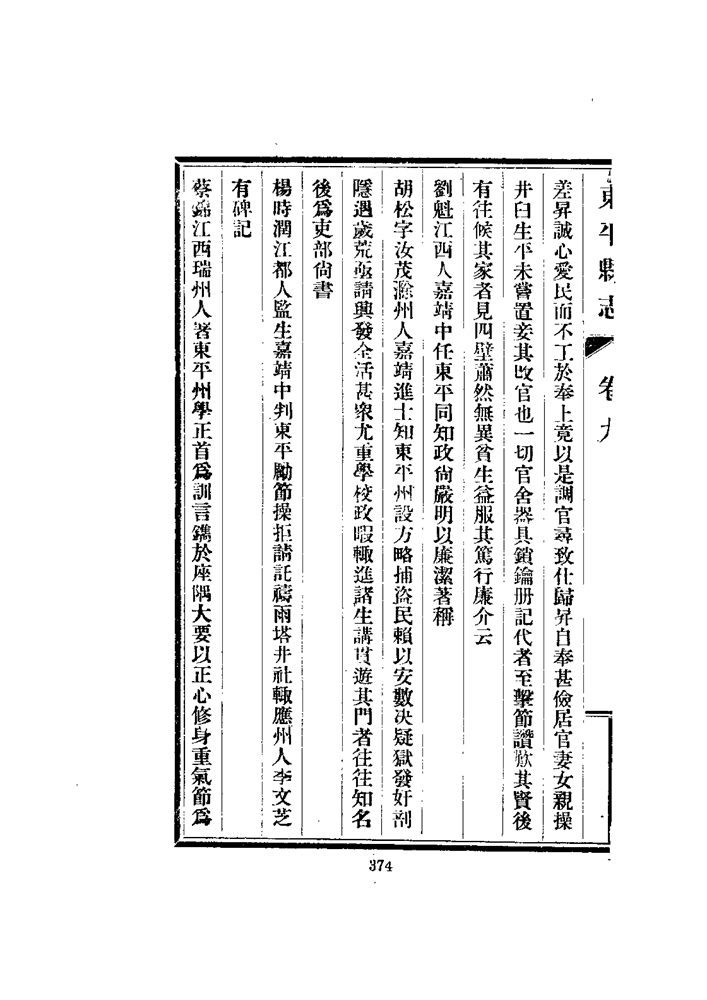 東平縣志 卷九
差昇誠心愛民而不工於奉上竟以是調官尋致仕歸昇自奉甚儉居官妻女親操
井臼生平未嘗置妾其改官也一切官舍器具鎖鑰册記代者至擊節讚歎其賢後
有往候其家者見四壁蕭然無異貧生益服其篤行廉介云
劉魁江西人嘉靖中任東平同知政尙嚴明以廉潔著稱
胡松字汝茂滁州人嘉靖進士知東平州設方略捕盜民賴以安數决疑獄發奸剖
隱遇歲荒亟請興發全活甚衆尤重學校政暇輙進諸生講貫遊其門者往往知名
後爲吏部尙書
楊時潤江都人監生嘉靖中判東平勵節操拒請託禱雨塔井社輙應州人李文芝
有碑記
蔡錦江西瑞州人署東平州學正首爲訓言鐫於座隅大要以正心修身重氣節爲
374